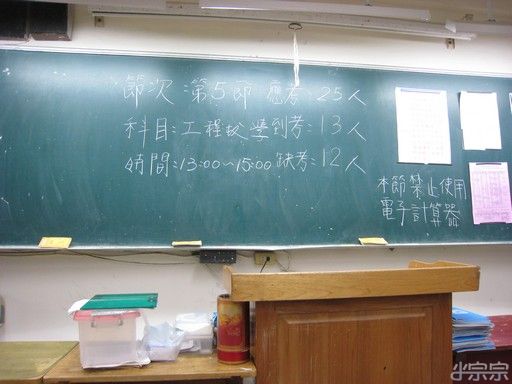 節次:第5節 應考:25人
科目:工程數學 到考:13人
時間:13:00~15:00 缺考:12人
本節禁止使用
電子計算器
小宗宗